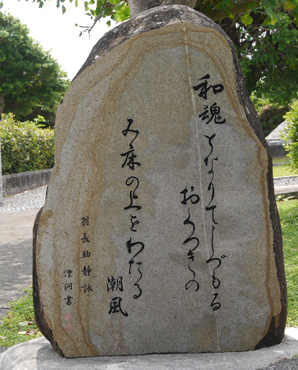 和魂となりてしづもる
おくつきの
み床の上をわたる
潮風
翁長助静詠
書